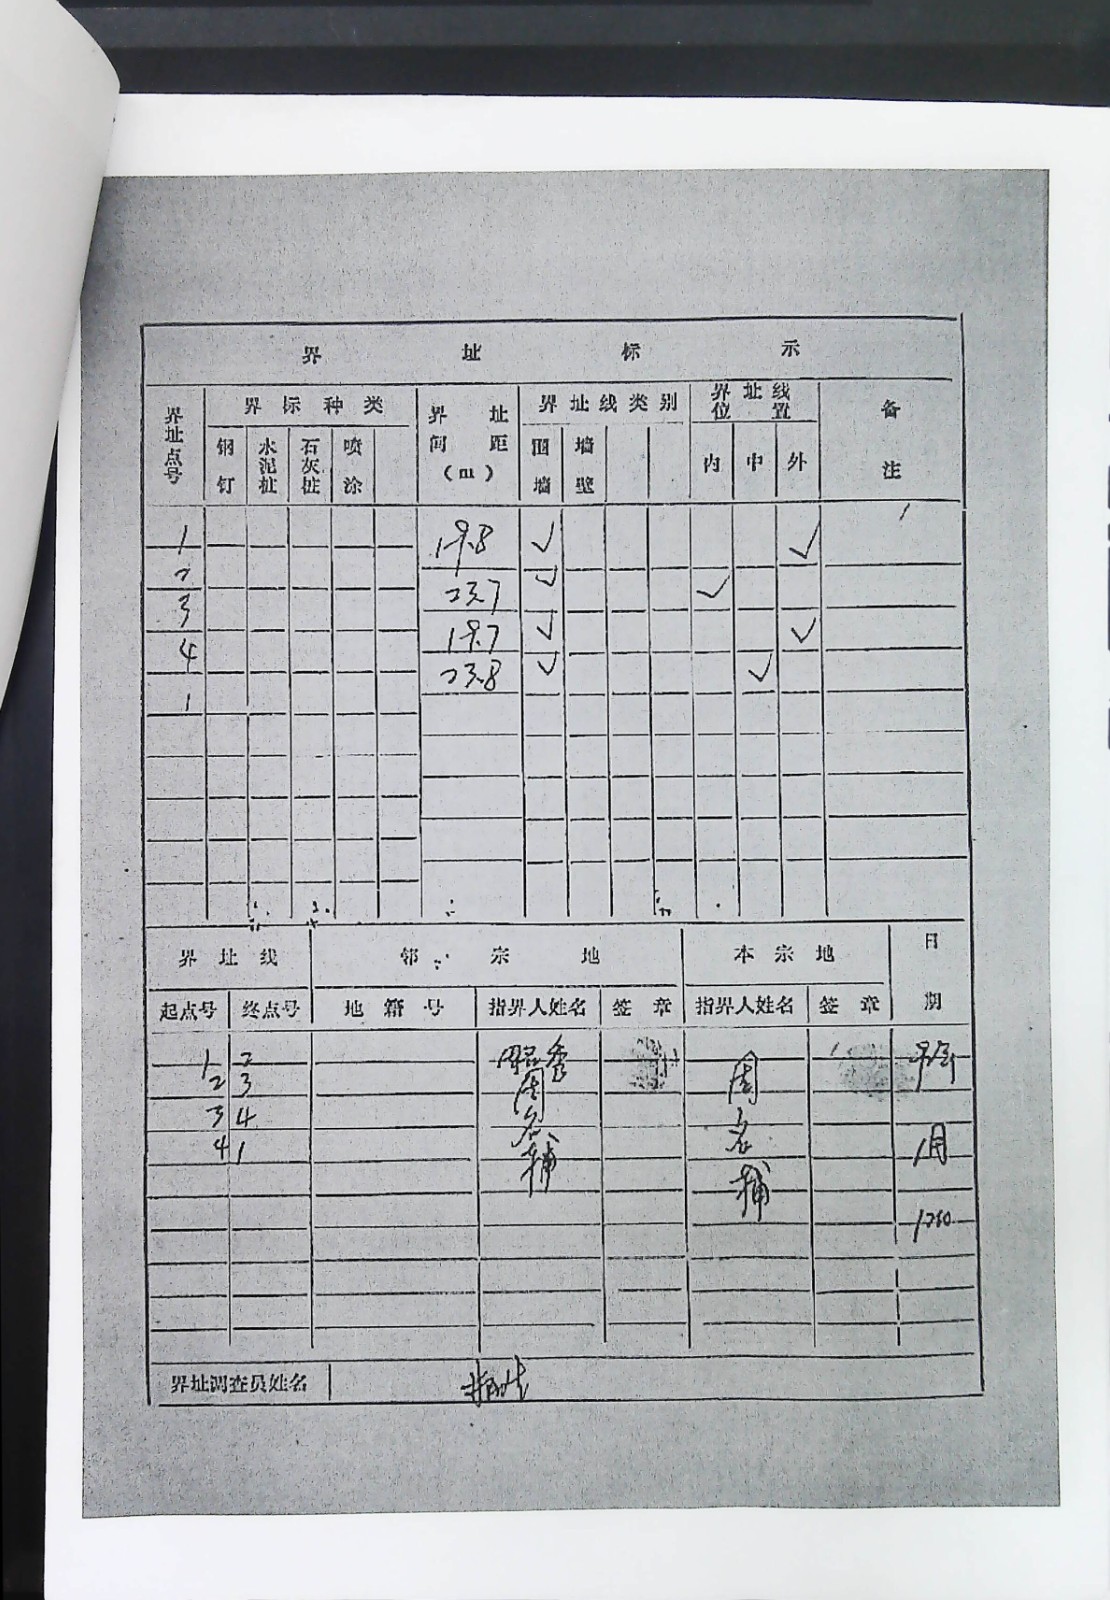 界 址 标 示
界址点号 界标种类 界址间距(m) 界址线类别 界址线位置 备注
钢钉 水泥桩 石灰桩 喷涂 围墙 墙壁 内 中 外
1
19.8 ✓ ✓
2
23.7 ✓ ✓
3
19.7 ✓ ✓
4
23.8 ✓ ✓
1
界址线 邻宗地 本宗地 日期
起点号 终点号 地籍号 指界人姓名 签章 指界人姓名 签章
1 2
2 3 周 周
3 4 名 名
4 1 辅 1月
辅
界址调查员姓名